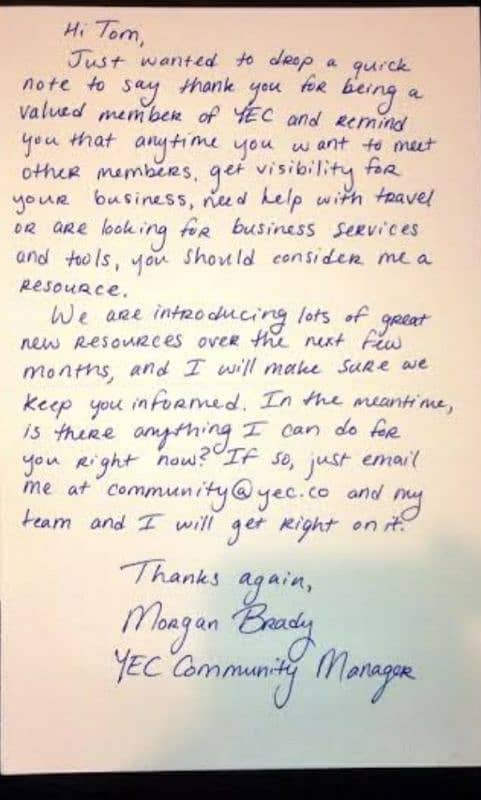 Hi Tom,
Just wanted to drop a quick
note to say thank you for being a
valued member of YEC and remind
you that anytime you want to meet
other members, get visibility for
your business, need help with travel
or are looking for business services
and tools, you should consider me a
resource.
We are introducing lots of great
new resources over the next few
months, and I will make sure we
keep you informed. In the meantime,
is there anything I can do for
you right now? If so, just email
me at community@yec.co and my
team and I will get right on it.
Thanks again,
Morgan Brady
YEC Community Manager